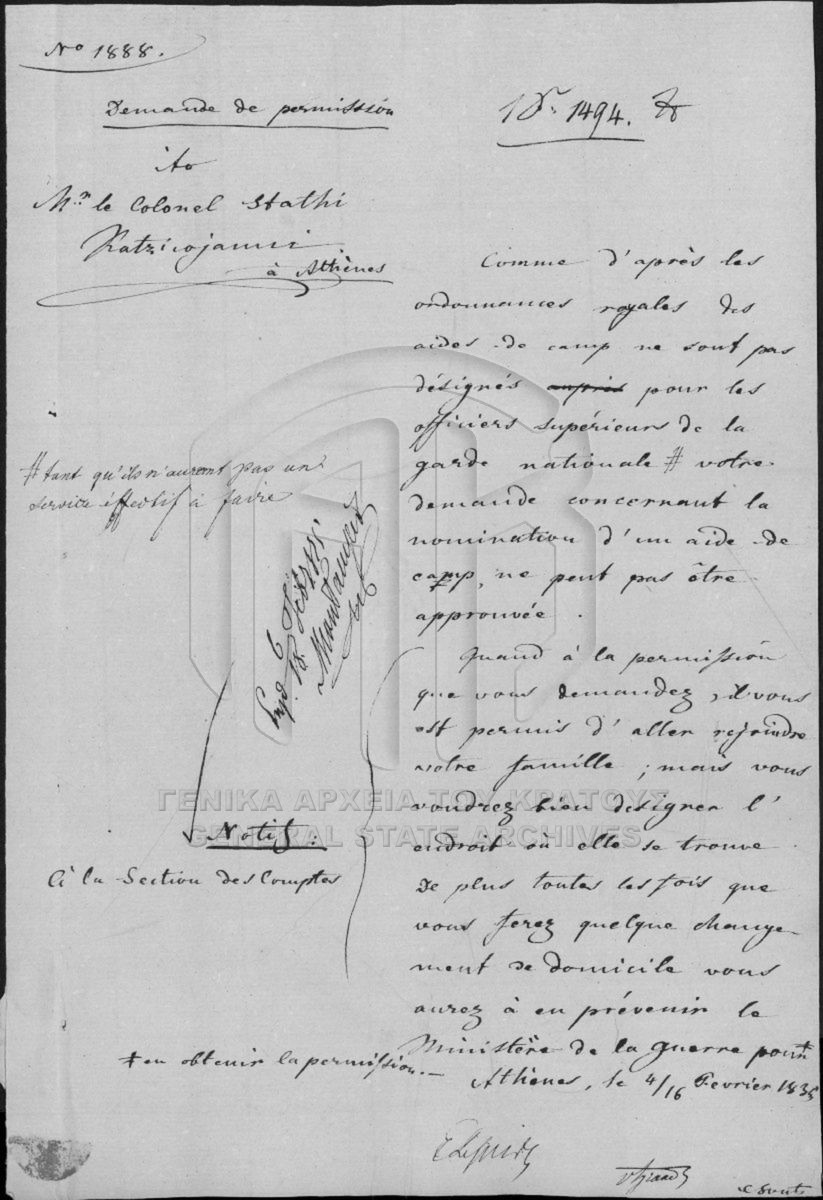 No 1888.
Demande de permission
Ao
Mr. le Colonel Stathi
Katzicojanni
à Athènes
1494.
Comme d'après les
ordonnances royales des
aides-de camp ne sont pas
désignés auprès pour les
officiers supérieurs de la
garde nationale # votre
demande concernant la
nomination d'un aide-de
camp, ne peut pas être
approuvée.
# tant qu'ils n'auront pas un
service éffectif à faire
Quand à la permission
que vous demandez, il vous
est permis d'aller rejoindre
votre famille; mais vous
voudrez bien designer l'
endroit où elle se trouve
De plus toutes les fois que
vous ferez quelque change-
ment de domicile vous
aurez à en prévenir le
Ministère de la guerre pour +
+ en obtenir la permission.—
Athènes, le 4/16 Fevrier 1835
Notif:
à la Section des Comptes
ΓΕΝΙΚΑ ΑΡΧΕΙΑ ΤΟΥ ΚΡΑΤΟΥΣ
GENERAL STATE ARCHIVES